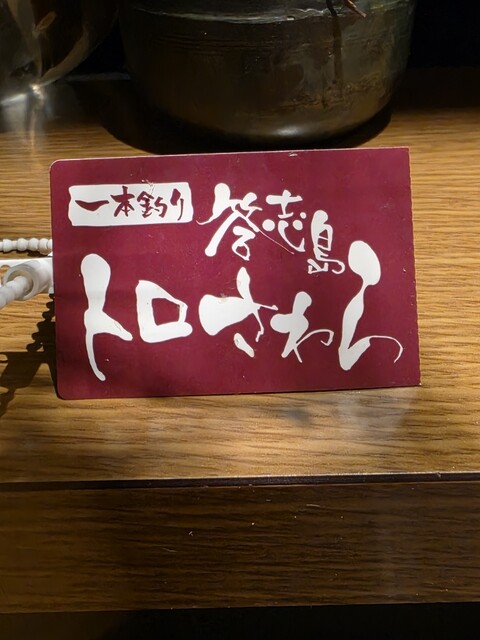 一本釣り
答志島
トロさわら